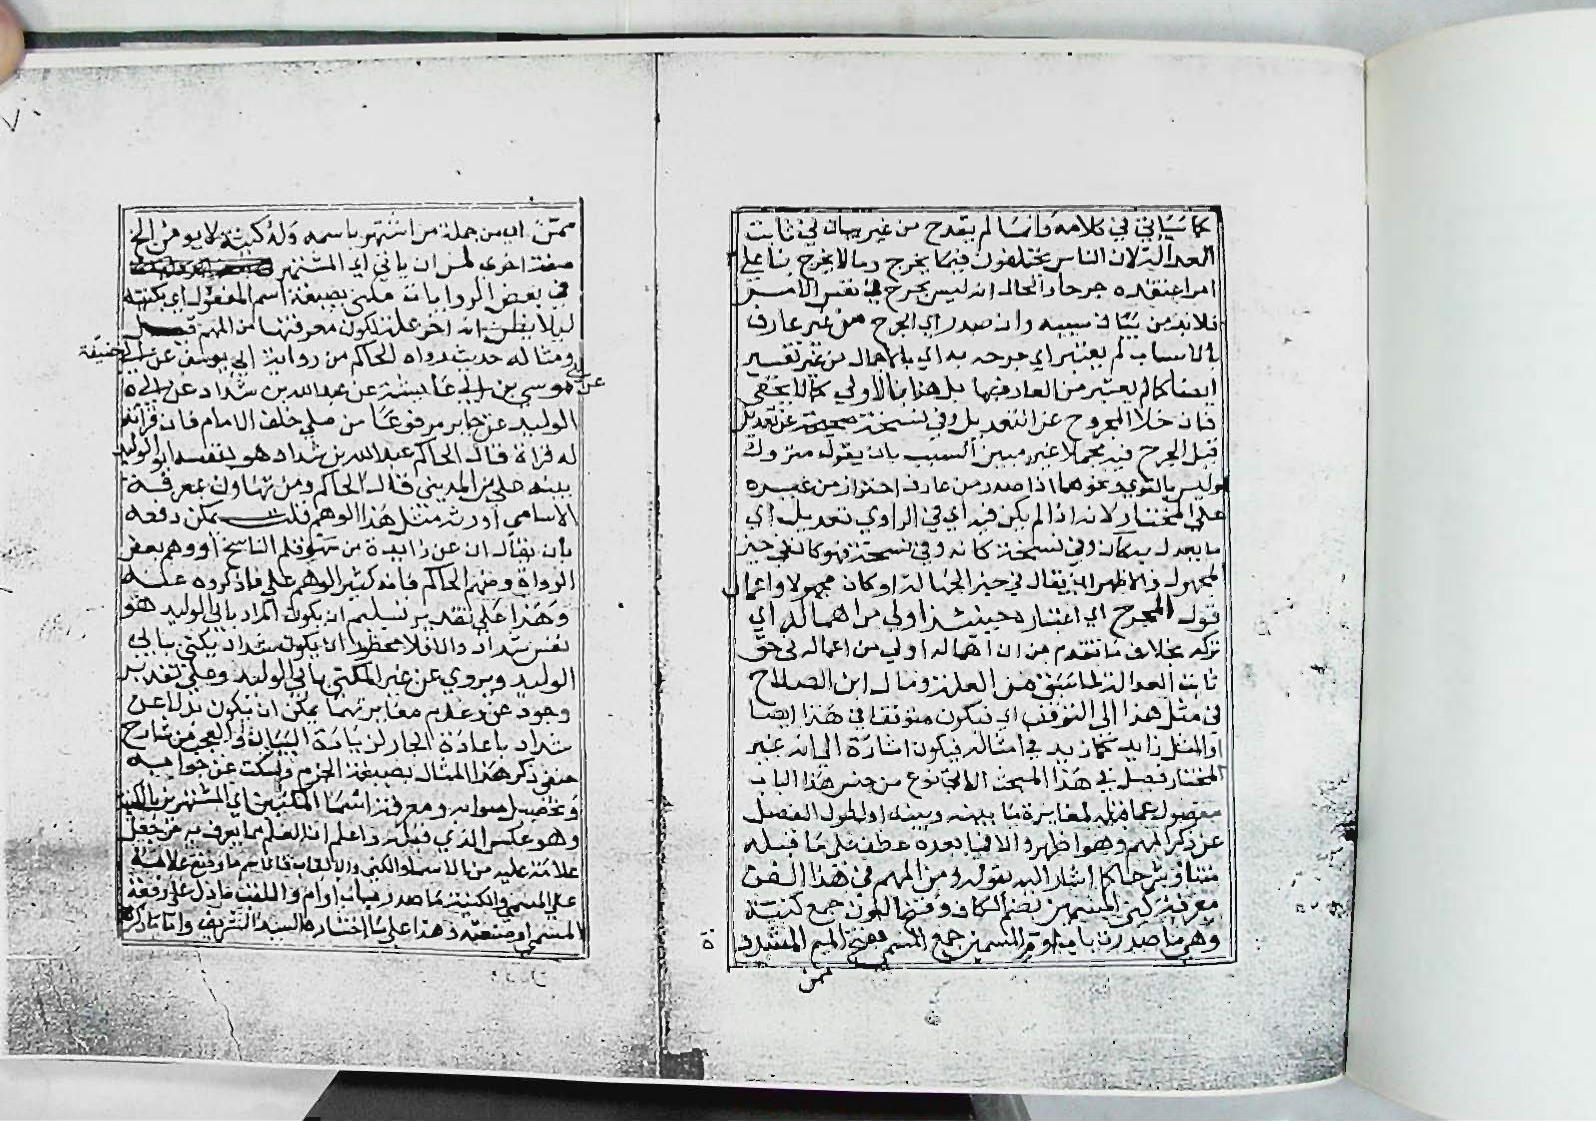 كما سيأتي في كلامه وانما لم يقدح من غير بيان في ثابت
العدالة لان الناس يختلفون فيما يخرج وما لا يخرج بناء على
امر اعتقده جرحا والحال انه ليس بجرح في نفس الامر
فلا بد من بيان سببه وان صدر اي الجرح من غير عارف
بالاسباب لم يعتبر اي جرحه به اي بالاجمال من غير تفسير
ايضا كما لم يعتبر من العارف بها بل هذا بالاولي كما لا يخفي
فان خلا المجروح عن التعديل وفي نسخة صحيحة عن تعديل
قبل الجرح فيه مجملا غير مبين السبب بان يقول متروك
وليس بالقوي ونحوهما اذا صدر من عارف احتراز من غيره
علي المختار لانه اذا لم يكن فيه اي في الراوي تعديل اي
ما يعدل به كان وفي نسخة كانه وفي نسخة فهو كان في حيز
المجهول والاظهر ان يقال في حيز الجهالة او كان مجهولا واعمال
قول المجرح اي اعتباره حينئذ اولي من اهماله اي
تركه بخلاف ما تقدم من ان اهماله اولي من اعماله في حق
ثابت العدالة لما سبق من العلة ومال ابن الصلاح
في مثل هذا الى التوقف اي فيكون متوقفا في هذا ايضا
او المثل زايد كما زيد في امثاله فيكون اشارة الى انه غير
المختار فصل في هذا المبحث الاتي نوع من جنس هذا الباب
مفصول عما قبله لمغايرة ما بينه وبينه او لطول الفصل
عن ذكر المهم وهو اظهر والا فما بعده عطف على ما قبله
متنا وشرحا كما اشار اليه بقوله ومن المهم في هذا الفن
معرفة كني المسمين بضم الكاف وفتح النون جمع كنية
وهي ما صدرت باب او ام المسمين جمع المسمي بفتح الميم المشددة
ممن
ممن اي من جملة من اشتهر باسمه وله كنية لا يؤمن
صفة اخرى لمن ان ياتي اي المشتهر
في بعض الروايات مكني بصيغة اسم المفعول اي بكنيته
ليلا يظن انه اخر علة لكون معرفتها من المهم
ومثاله حديث رواه الحاكم من رواية ابي يوسف عن ابي حنيفة
عن موسي بن ابي عايشة عن عبد الله بن شداد عن ابي
الوليد عن جابر مرفوعا من صلي خلف الامام فان قراته
له قراة قال الحاكم عبد الله بن شداد هو بنفسه ابو الوليد
بينه علي بن المديني قال الحاكم ومن تهاون بمعرفة
الاسامي اورثه مثل هذا الوهم قلت يمكن دفعه
بان يقال ان عن زايدة من سهو قلم الناسخ او وهم بعض
الرواة ومنهم الحاكم فانه كثير الوهم علي ما ذكروه عنه
وهذا علي تقدير تسليم ان يكون المراد بابي الوليد هو
نفس شداد والا فلا محظور ان يكون شداد يكني بابي
الوليد ويروي عن غير المكني بابي الوليد وعلي تقدير
وجود عن وعدم مغايرتهما يمكن ان يكون بدلا عن
شداد باعادة الجار لزيادة البيان والعجب من شارح
حنفي ذكر هذا المثال بصيغة الجزم وسكت عن جوابه
وتحصيل صوابه ومعرفة اسما المكنين اي المشتهرين بالكنية
وهو عكس الذي قبله واعلم ان العلم ما يعرف به من جعل
علامة عليه من الاسما والكني والالقاب فالاسم ما وضع علامة
علي المسمي والكنية ما صدر باب او ام واللقب ما دل علي رفعة
المسمي او ضعته وهذا على ما اختاره السيد الشريف